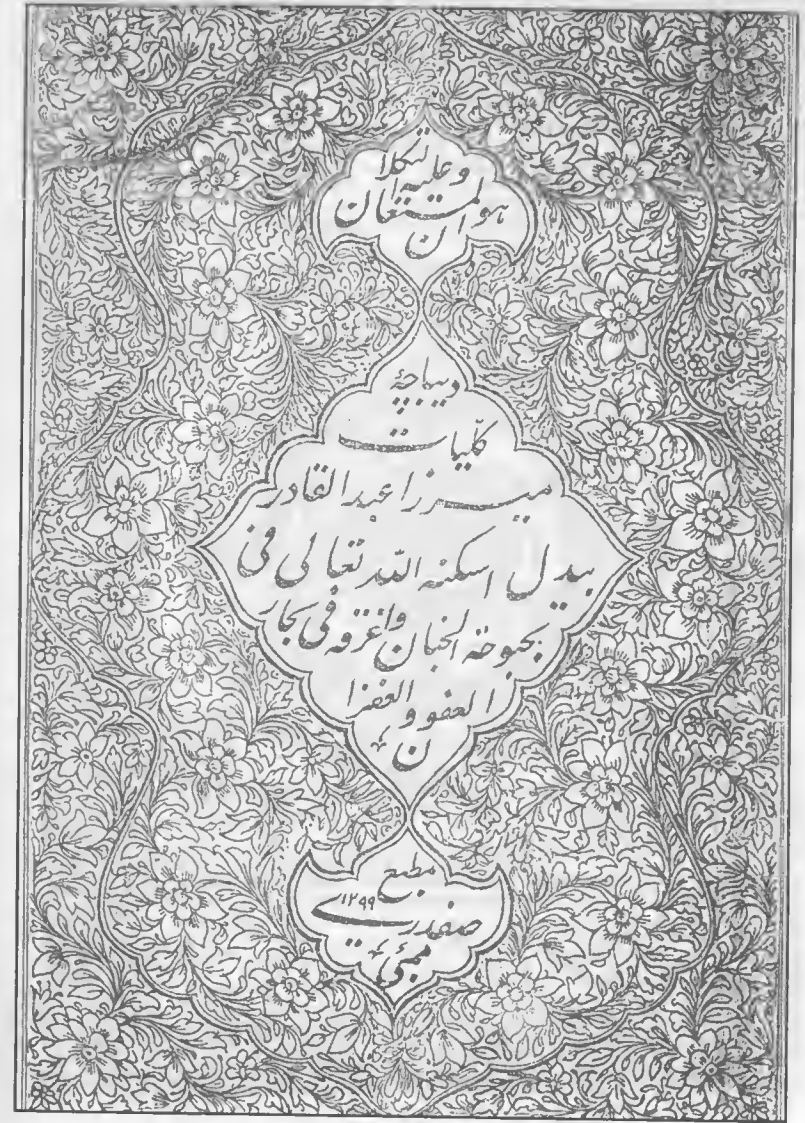 هو المستعان
وعليه التكلان
دیباچۀ
کلّیات
میرزا عبدالقادر
بیدل اسکنه الله تعالی فی
بحبوحة الجنان واغرقه فی بحار
العفو والغفرا
ن
مطبع
صفدری ۱۲۹۹
ممبئی